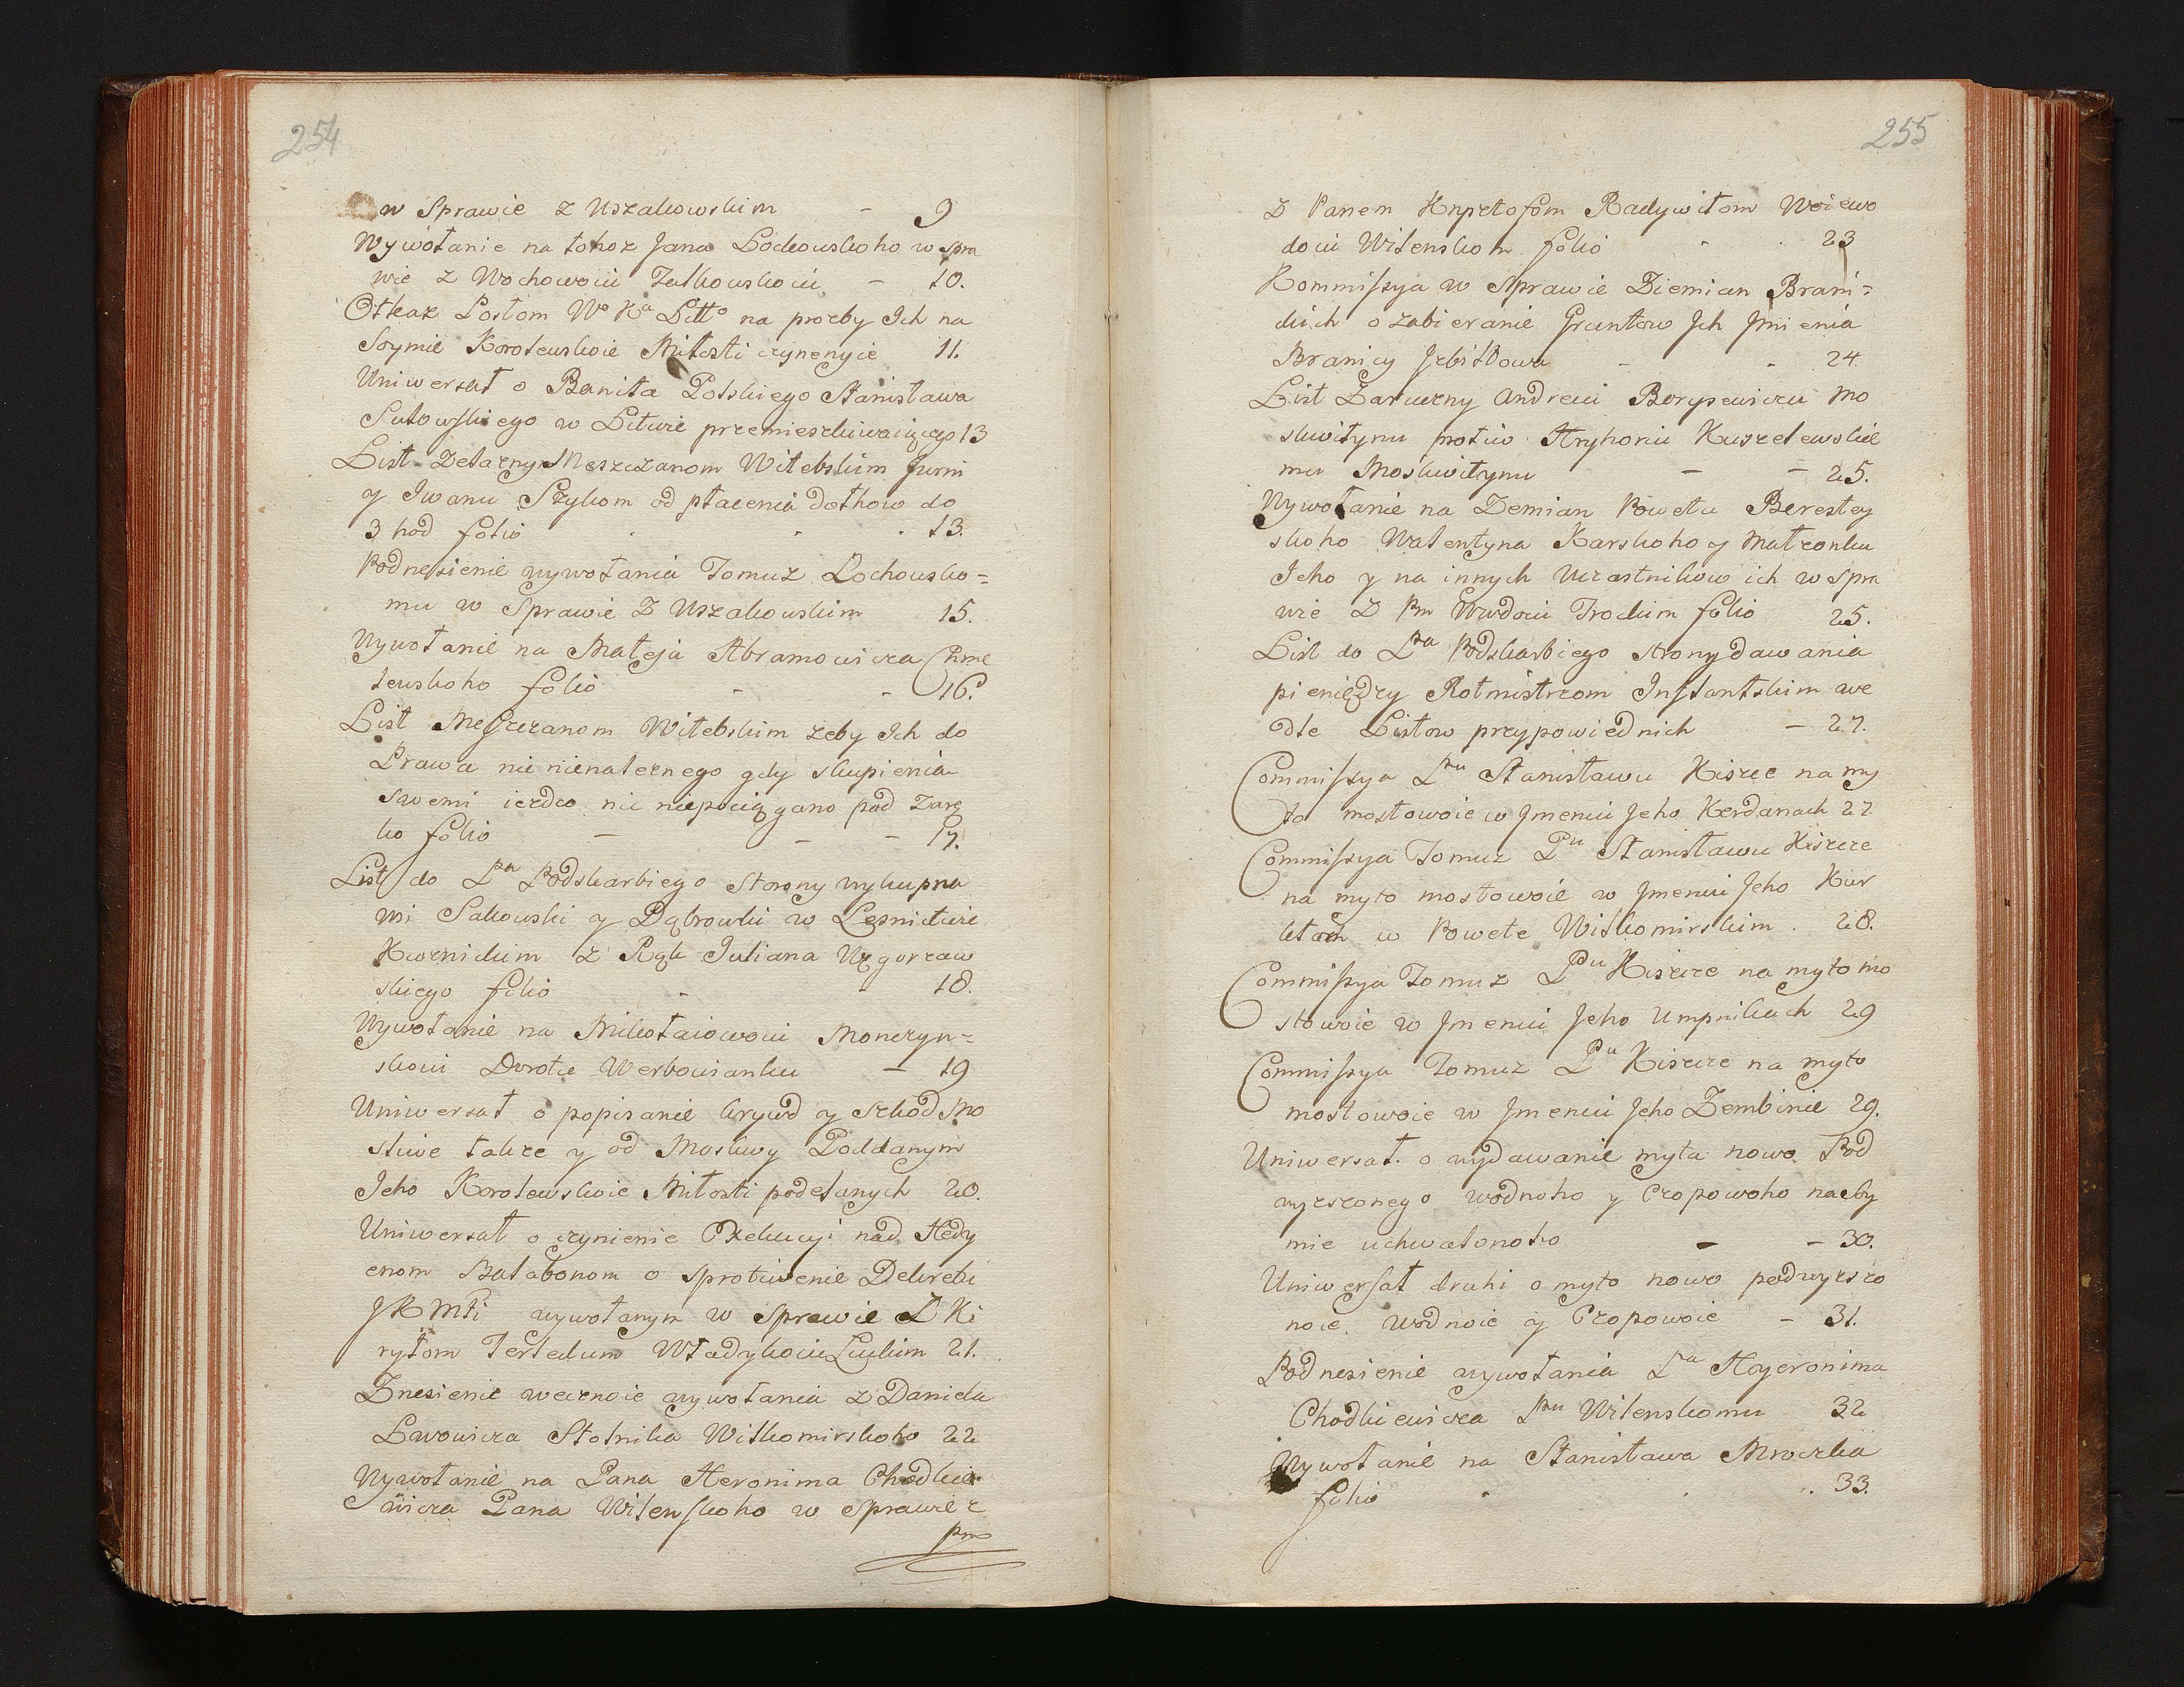 254
w Sprawie z Uszakowskim - 9
Wywołanie na tohoz Jana Lockowskoho w spra
wie z Wochowoiu Zalkowskoiu - 10.
Otkaz Posłom Wo Ka Litto na prozby Ich na
Soymie Korolewskoie Miłosti czynenyie 11.
Uniwersał o Banita Polskiego Stanisława
Sutowskiego w Litwie przemieszkiwaiącego 13
List Zelazny Meszczanom Witebskim Jurni
y Iwanu Szykom od płacenia dołhow do
3 hod folio . . . 13.
Podnesienie wywołania Tomuz Lochowsko=
mu w Sprawie z Uszakowskim 15.
Wywołanie na Mateja Abramowicza Chme
lewskoho folio - - 16.
List Meszczanom Witebskim zeby Ich do
Prawa nienienaleznego gdy skupienia
swemi iezdzo nie niepociągano pod Zarę
ko folio - - - 17.
List do Pa Podskarbiego Storony wykupna
wsi Sakowski y Dąbrowki w Lesnictwie
Kwornickim z Rąk Juliana Węgorzaw
skiego folio - - 18.
Wywołanie na Mikołaiowoiu Monczyn=
skoiu Dorotu Werbowianku - 19
Uniwersał o popisanie krywd y szkod Mo
skwe takze y od Moskwy Poddanym
Jeho Korolewskoie Miłosti podełanych 20.
Uniwersał o czynienie Exekucyi nad Hedy
enom Bałabonom o sprotiwenie Dekretu
JKMłi wywołanym w sprawie z Ki
ryłom Terleckim Władykoiu Łuckim 21.
Znesienie wecznoie wywołania z Daniela
Lwowicza Stolnika Wilkomirskoho 22
Wywołanie na Pana Heronima Chodkie
wicza Pana Wilenskoho w sprawie z
pm
255
Z Panem Krysztofom Radywiłom Woiewo
doiu Wilenskom folio . . 23
Kommissya w Sprawie Ziemian Brani=
ckich o zabieranie Gruntow Ich Jmienia
Branicy Jzbitkowa - - 24.
List Zaruczny Andreiu Borysewiczu Mo
skwitynu protiw Hryhoriu Kuszelewskie
mu Moskwitynu - - 25.
Wywołanie na Zemian Powetu Berestey
skoho Walentyna Karskoho y Małzonku
Jeho y na innych Uczastnikow ich w Spra
wie z Pm Wwdoiu Trockim folio 25.
List do Pa Podskarbiego strony dawania
pieniędzy Rotmistrzom Inflantskim we
dle Listow przypowiednich - 27.
Commissya Pnu Stanisławu Kiszce na my
to mostowoie w Jmeniu Jeho Kerdanach 27.
Commissya Tomuz Pu Stanisławu Kiszcze
na myto mostowoie w Jmeniu Jeho Kur
klach w Powete Wilkomirskim . 28.
Commissya Tomuz Pnu Kiszcze na myto mo
stowoie w Jmeniu Jeho Umpnikach 29
Commissya Tomuz Pu Kiszcze na myto
mostowoie w Jmeniu Jeho Zembinie 29.
Uniwersał o wydawanie myta nowo Pod
wyzszonego wodnoho y Czopowoho na sey
mie uchwałonoho - - 30.
Uniwersał druhi o myto nowo podwyzszo
noie wodnoie y Czopowoie - 31.
Podnesienie wywołania Pa Hyeronima
Chodkiewicza Pnu Wilenskomu 32
Wywołanie na Stanisława Mroczka
folio . . . 33.